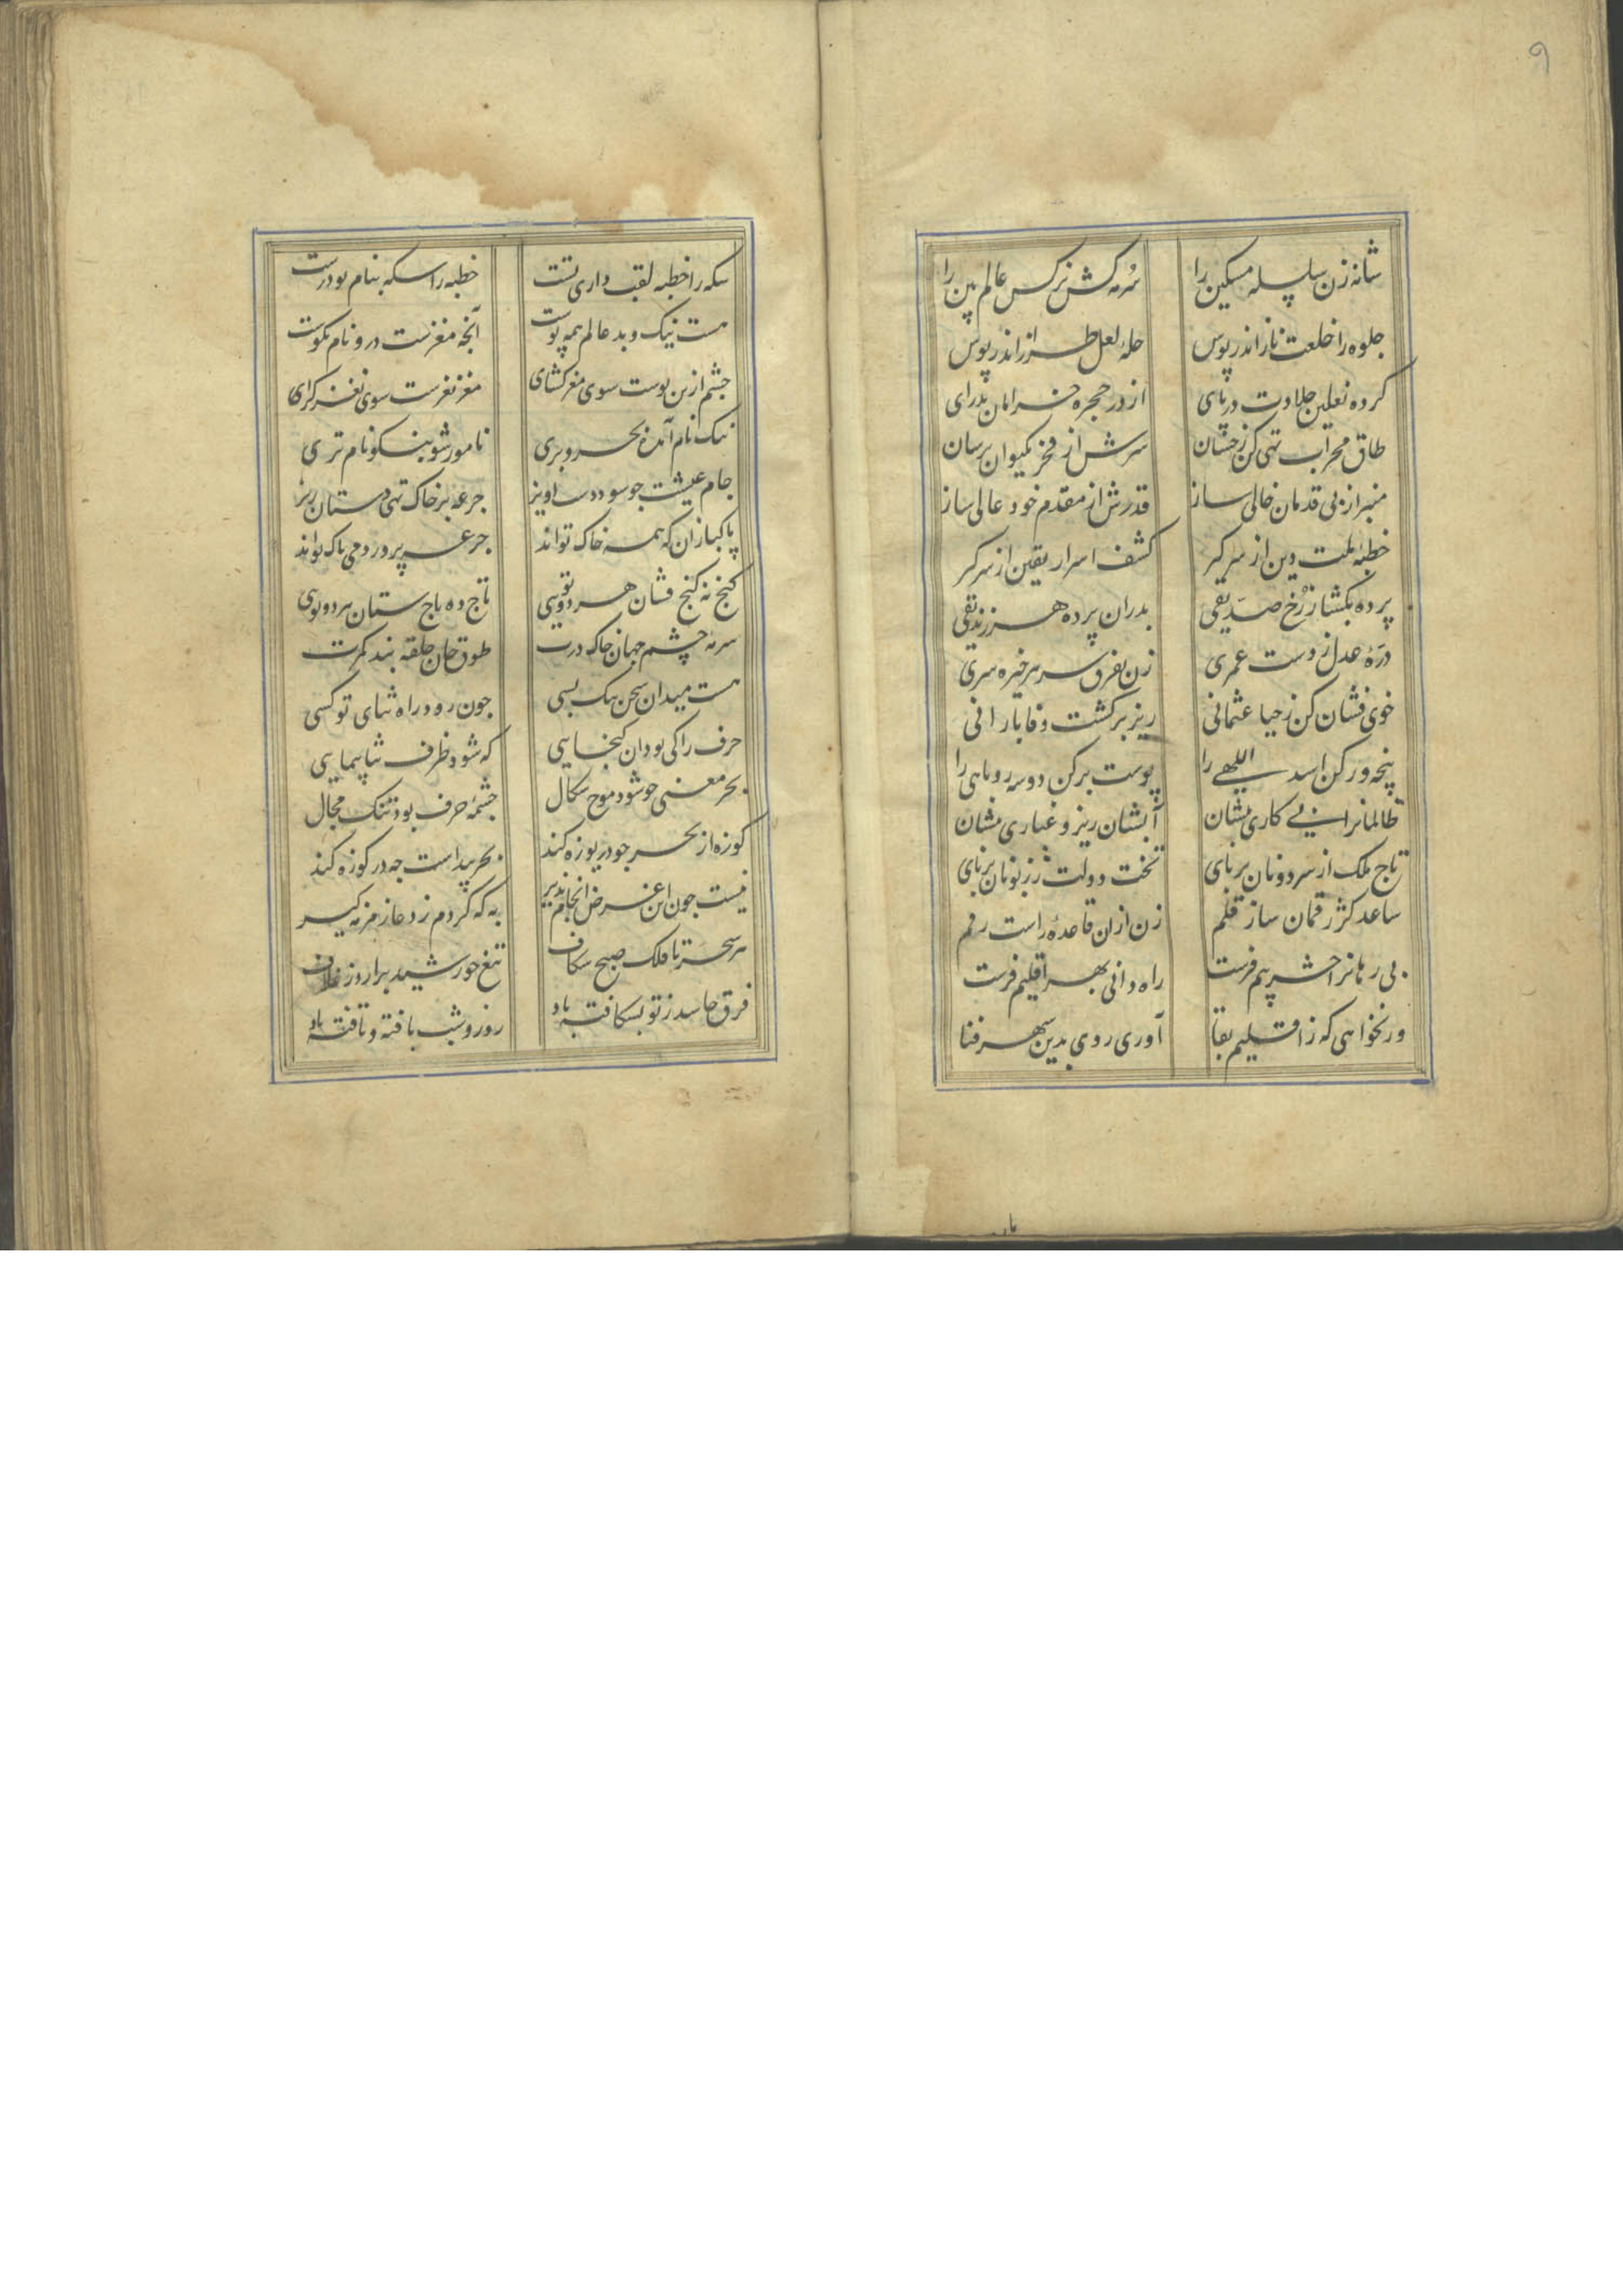 ۹
شانه زن سلسله مسکین را سرمه کش نرکس عالم بین را
جلوه را خلعت ناز اندر پوس حله لعل طراز اندر پوس
کرده نعلین جلاوت در پای از در حجره خرامان بدرای
طاق محراب تهی کن زخسان سرش از فخر بکیوان برسان
منبر از بی قدمان خالی ساز قدرش از مقدم خود عالی ساز
خطبه ملت دین از سر کر کشف اسرار یقین از سر کر
پرده بکشا ز رُخ صدیقی بدران پرده هر زندیقی
درّه عدل ز دست عمری زن بفرق سر هر خیره سری
خوی فشان کن ز حیا عثمانی ریز بر کشت وفا بارانی
پنجه ور کن اسد اللهی را پوست برکن دو سه روباهی را
ظالمانرا ز پی کاری بنشان آبشان ریز و غباری بنشان
تاج ملک از سر دونان بربای تخت دولت ز زبونان بربای
ساعد کژ رقمان ساز قلم زن ازان قاعده راست رقم
بی رهانرا حشر بیم فرست راه دانی بهر اقلیم فرست
ور نخواهی که ز اقلیم بقا آوری روی بدین سهر فنا
سکه را خطبه لقب داری تست خطبه را سکه بنام تو درست
هست نیک و بد عالم همه پوست آنچه مغزست درو نام نکوست
چشم ازین پوست سوی مغز کشای مغز نغزست سوی نغز کرای
نیک نام آمده بحر و بری نامور شو بنکو نام تری
جام عیشت چو سود دست اویز جرعه بر خاک تهی دستان ریز
پاکبازان که همه خاک تواند جرعه پرورد می پاک تواند
کنج نه کنج فشان هر دو توئی تاج ده باج ستان هر دو توئی
سرمه چشم جهان خاک درت طوق جان حلقه بند کمرت
هست میدان سخن تنک بسی چون رود راه ثنای تو کسی
حرف را کی بود ان کنجایی که شود ظرف ثنا پیمایی
بحر معنی چو شود موج سکال چشمه حرف بود تنک مجال
کوزه از بحر چو دریوزه کند بحر پیداست چه در کوزه کند
نیست چون این غرض انجام پذیر به که کردم ز دعا زمزمه کیر
هر سحر تا فلک صبح سکاف تیغ خورشید برارد ز غلاف
فرق حاسد ز تو بسکافته باد روز و شب بافته و تافته باد